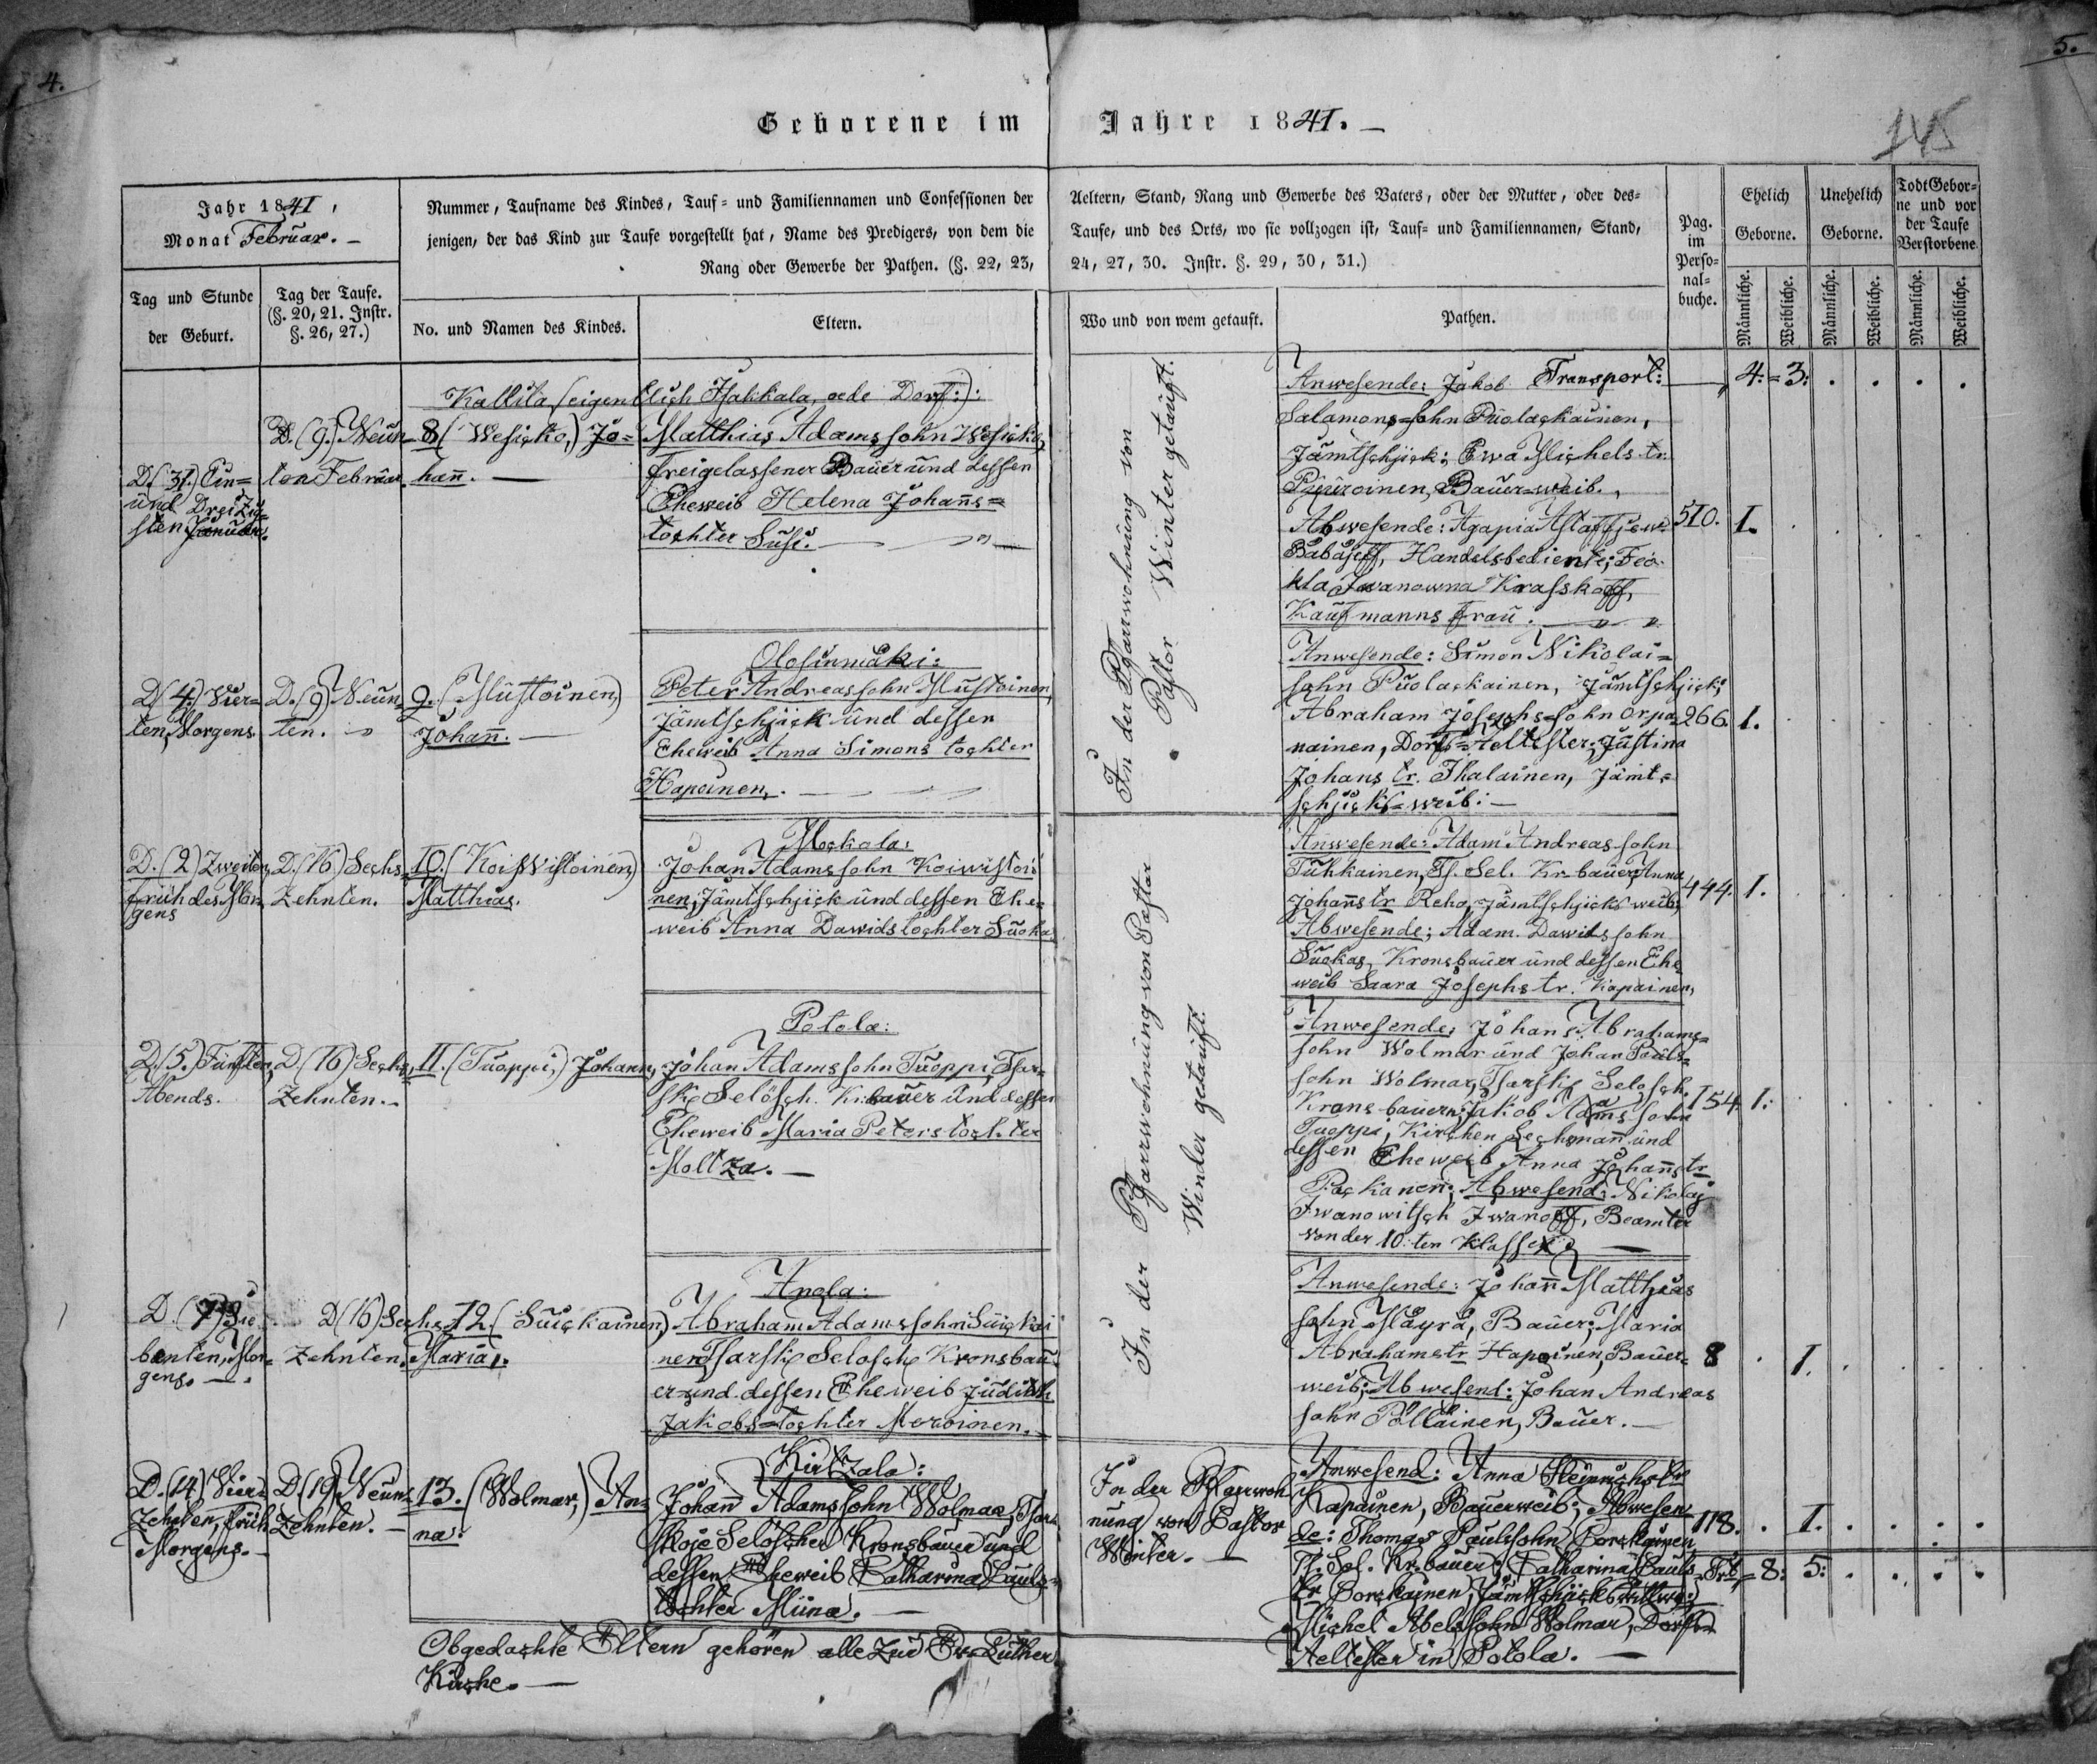 4.
5.
145
Geborene im Jahre 1841. —
Jahr 1841,
Monat Februar. —
Nummer, Taufname des Kindes, Tauf- und Familiennamen und Confessionen der
jenigen, der das Kind zur Taufe vorgestellt hat, Name des Predigers, von dem die
Rang oder Gewerbe der Pathen. (§. 22, 23,
Aeltern, Stand, Rang und Gewerbe des Vaters, oder der Mutter, oder des-
Taufe, und des Orts, wo sie vollzogen ist, Tauf- und Familiennamen, Stand,
24, 27, 30. Instr. §. 29, 30, 31.)
Pag.
im
Perso-
nal-
buche.
Ehelich
Geborne.
Unehelich
Geborne.
Todt Gebor-
ne und vor
der Taufe
Verstorbene.
Tag und Stunde
der Geburt.
Tag der Taufe.
(§. 20, 21. Instr.
§. 26, 27.)
No. und Namen des Kindes.
Eltern.
Wo und von wem getauft.
Pathen.
Männliche.
Weibliche.
Männliche.
Weibliche.
Männliche.
Weibliche.
Transport: — 4. = 3. . . . .
Kallila (eigentlich Isakkala, ode Dorf:):
D. (31.) Ein=
und Dreizig-
sten Januar.
D. (9.) Neun-
ten Februar.
8 (Wesicko,) Jo=
hann. —
Matthias Adamssohn Wesicko,
freigelassener Bauer und dessen
Eheweib Helena Johanns=
tochter Susi. —
In der Pfarrwohnung von
Pastor Winter getauft.
Anwesende: Jakob
Salamons=sohn Puolackainen,
Jämtschjick; Ewa Michels tr.
Bauer=weib.
Abwesende: Agapia
Handelsbediente; Feo-
kla Iwanowna Krasskoff,
Kaufmanns frau. —
510. 1.
Olosinmäki:
D. (4.) Vier-
ten, Morgens.
D. (9) Neun-
ten.
9. (Mustoinen,)
Johann. —
Peter Andreassohn Mustoinen,
Jämtschjick und dessen
Eheweib Anna Simons tochter
Hapoinen. —
Anwesende: Simon Nikolai=
sohn Puolackainen, Jämtschjick;
Abraham Josephs=sohn Orpa-
nainen, Dorfs=Aeltester; Justina
Johans tr. Ihalainen, Jämt=
schjicks=weib: —
266. 1.
Mockola:
D. (2) Zweiten,
früh des Mor-
gens
D. (16) Sechs-
zehnten.
10. (Koiwistoinen)
Matthias.
Johan Adamssohn Koiwistoi
nen, Jämtschjick und dessen Ehe-
weib Anna Dawids tochter Suoka
In der Pfarrwohnung von Pastor
Winder getauft.
Anwesende: Adam Andreassohn
Tuhkainen, Ts. Sel. Kr. bauer, Anna
Johanns tr Reho, Jämtschjicks weib;
Abwesende; Adam. Dawidssohn
Suokas, Kronsbauer und dessen Ehe
weib Saara Josephs tr. Kapainen,
444. 1.
Potola:
D. (5.) Fünften,
Abends.
D. (16) Sechs-
zehnten. —
11. (Tuoppi,) Johann,
Johan Adamssohn Tuoppi, Tsar-
sk. Selösch. Kr. bauer und dessen
Eheweib Maria Peters tochter
Moltza. —
Anwesende: Johans Abrahams=
sohn Wolmar und Johan Pauls=
sohn Wolmar, Tsarsk. Selosch.
Krons bauern; Jakob Adams sohn
Tuoppi, Kirchen und
dessen Eheweib Anna Johanns tr
Abwesend: Nikolaj
Iwanowitsch Iwanoff, Beamter
von der 10:ten Klasse. —
154. 1.
Anola:
D. (7) Sie-
benten, Mor-
gens. —
D. (16) Sechs
zehnten.
12. (Suickainen,)
Maria.
Abraham Adamssohn Suickai
nen Tsarsk. Selosch. Kronsbau-
er und dessen Eheweib Judith
Jakobs=tochter Moroinen. —
Anwesende: Johann Matthias
sohn Mäyrä, Bauer; Maria
Abrahams tr Hapoinen, Bauer-
weib; Abwesend: Johan Andreas
sohn Pölläinen, Bauer. —
8 . 1.
Kirtzala:
D. (14) Vier-
zehnten, früh
Morgens. —
D. (19) Neun-
zehnten. —
13. (Wolmar,) An-
na.
Johann Adamssohn Wolmar, Tsar-
skoje Selöscher Kronsbauer und
dessen Eheweib Catharina Pauls-
tochter Miina. —
In der Pfarrwoh
nung von Pastor
Winter. —
Anwesend: Anna Heinrichs tr
Kapainen, Bauerweib; Abwesen
de: Thomas Paulssohn Porckainen,
Ts. Sel. Kr. bauer; Catharina Pauls
tr Porckainen, Jämtschjicks Wittwe;
Michel Abelssohn Wolmar, Dorfs
Aeltester in Potola. —
118. . 1.
Trt. = 8: 5:
Obgedachte Eltern gehören alle zur Ew. Luther.
Kirche. —